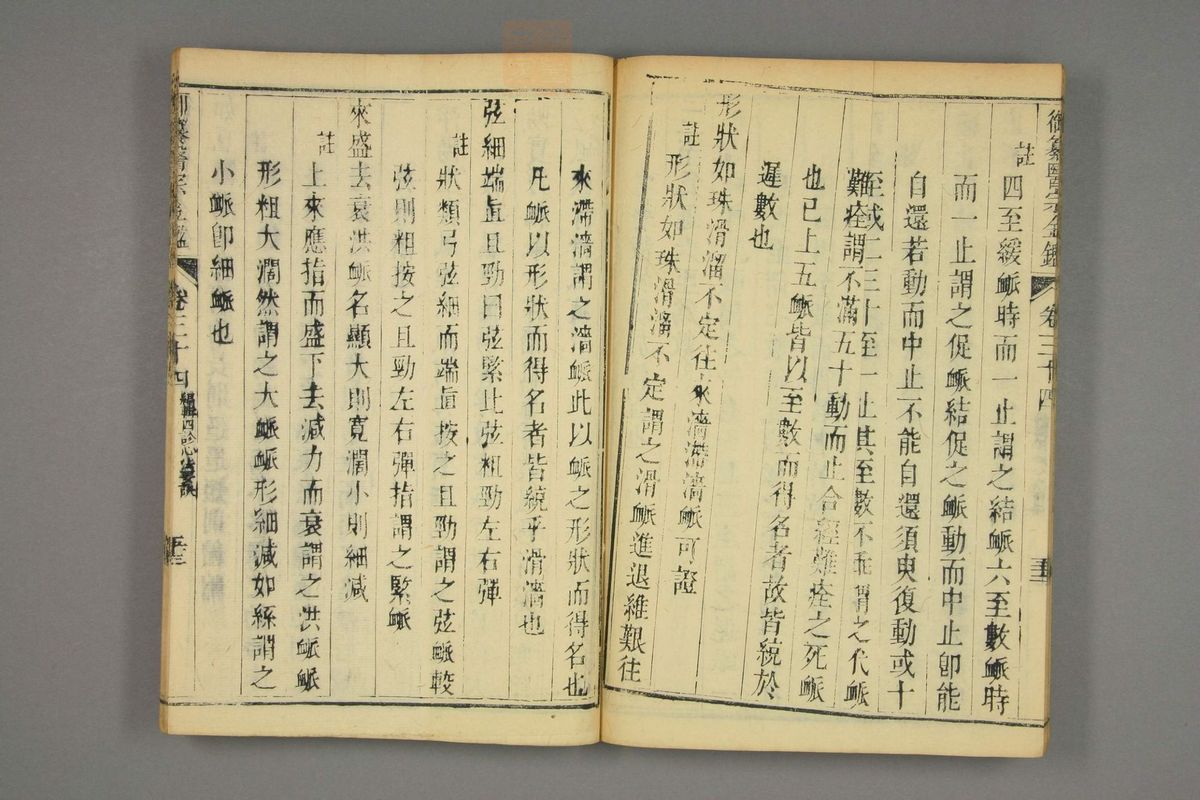 御纂醫宗金鑑 卷三十四
註 四至緩衇時而一止謂之結衇六至數衇時
而一止謂之促衇結促之衇動而中止卽能
自還若動而中止不能自還須臾復動或十
至或二三十至一止其至數不乖謂之代衇
難痊謂不滿五十動而止合經難痊之死衇
也已上五衇皆以至數而得名者故皆統於
遲數也
形狀如珠滑溜不定往來濇滯濇衇可證
註 形狀如珠滑溜不定謂之滑衇進退維艱往
來滯濇謂之濇衇此以衇之形狀而得名也
凡衇以形狀而得名者皆統乎滑濇也
弦細端直且勁曰弦緊比弦粗勁左右彈
註 狀類弓弦細而端直按之且勁謂之弦衇較
弦則粗按之且勁左右彈指謂之緊衇
來盛去衰洪衇名顯大則寬濶小則細減
註 上來應指而盛下去減力而衰謂之洪衇衇
形粗大濶然謂之大衇衇形細減如絲謂之
小衇卽細衇也
御纂醫宗金鑑 卷三十四 編輯四診心法要訣